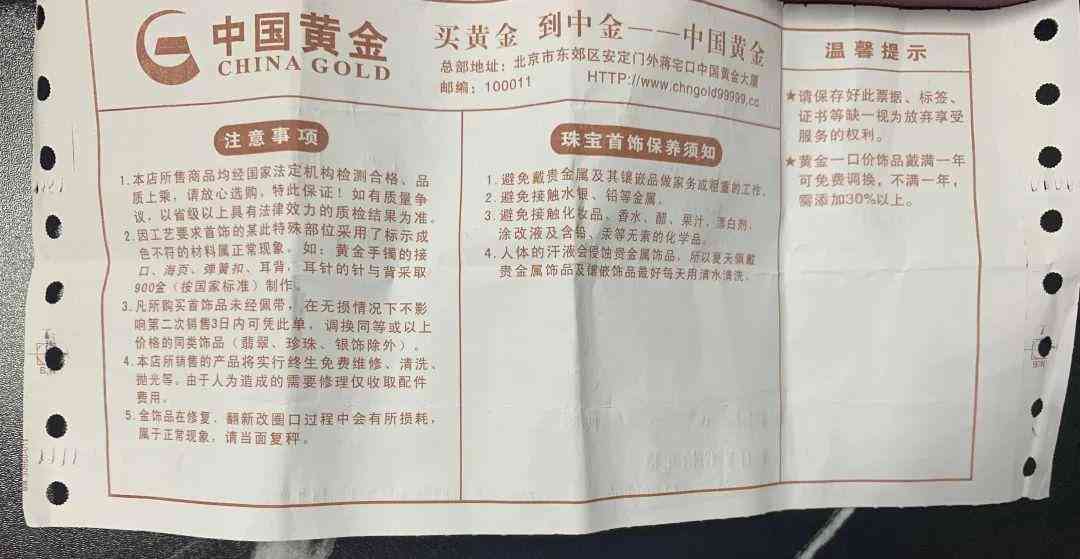 中国黄金
CHINA GOLD
买黄金 到中金——中国黄金
总部地址：北京市东郊区安定门外蒋宅口中国黄金大厦
邮编：100011 HTTP://www.chngold99999.cc
温馨提示
★请保存好此票据、标签、
证书等缺一视为放弃享受
服务的权利。
★黄金一口价饰品戴满一年
可免费调换，不满一年，
需添加30%以上。
注意事项
1.本店所售商品均经国家法定机构检测合格、品
质上乘，请放心选购，特此保证！如有质量争
议，以省级以上具有法律效力的质检结果为准。
2.因工艺要求首饰的某此特殊部位采用了标示成
色不符的材料属正常现象。如：黄金手镯的接
口、海页、弹簧扣、耳背，耳针的针与背采取
900金（按国家标准）制作。
3.凡所购买首饰品未经佩带，在无损情况下不影
响第二次销售3日内可凭此单，调换同等或以上
价格的同类饰品（翡翠、珍珠、银饰除外）。
4.本店所销售的产品将实行终生免费维修、清洗、
抛光等。由于人为造成的需要修理仅收取配件
费用。
5.金饰品在修复、翻新改圈口过程中会有所损耗，
属于正常现象，请当面复秤。
珠宝首饰保养须知
1.避免戴贵金属及其镶嵌品做家务或粗重的工作。
2.避免接触水银、铅等金属。
3.避免接触化妆品、香水、醋、果汁、漂白剂、
涂改液及含铅、汞等无素的化学品。
4.人体的汗液会侵蚀贵金属饰品，所以夏天佩戴
贵金属饰品及镶嵌饰品最好每天用清水清洗。